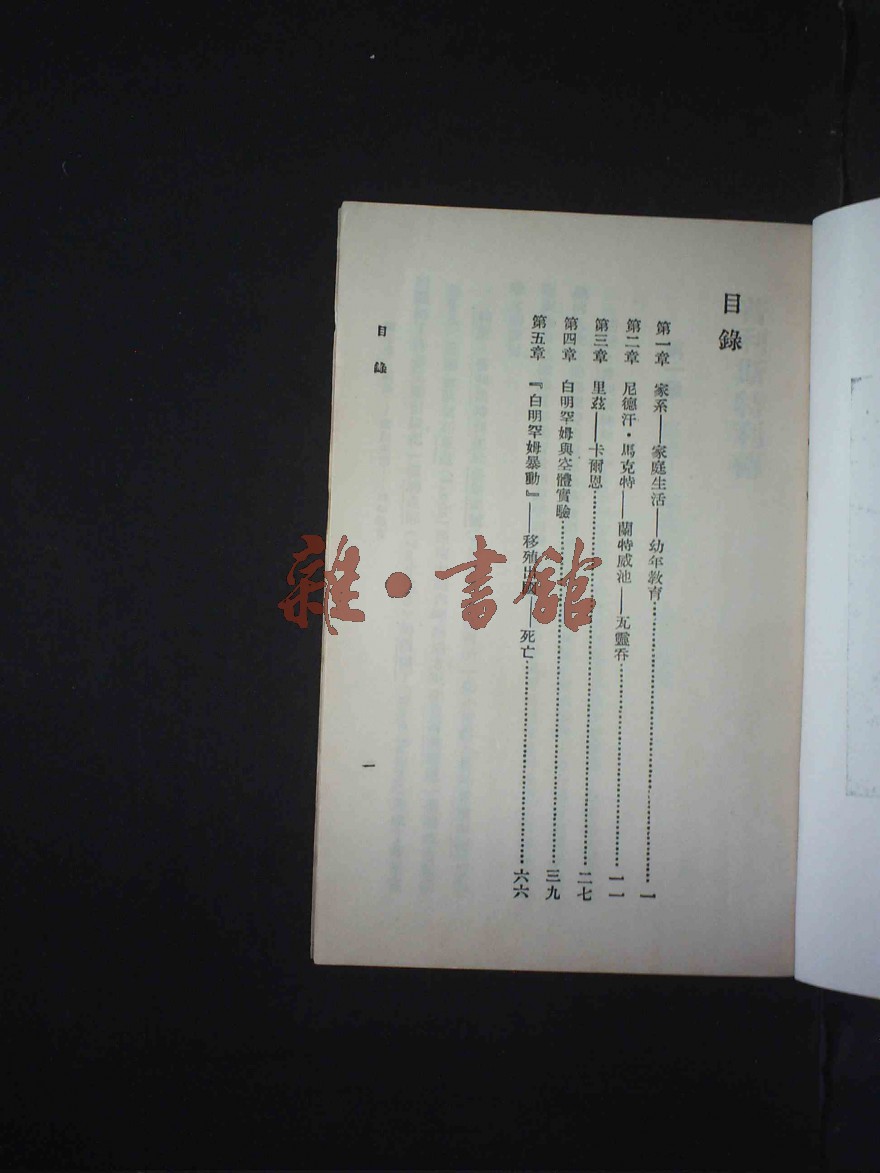 目錄
第一章 家系——家庭生活——幼年教育……一
第二章 尼德汗·馬克特——蘭特威池——瓦靈吞……一一
第三章 里茲——卡爾恩……二七
第四章 白明罕姆與空體實驗……三九
第五章 『白明罕姆暴動』——移殖出國——死亡……六六
目錄
一
雜·書館